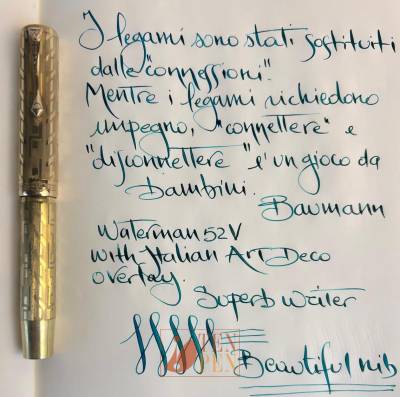 I legami sono stati sostituiti
dalle "connessioni".
Mentre i legami richiedono
impegno, "connettere" e
"disconnettere" e' un gioco da
bambini.
Baumann
Waterman 52V
with Italian Art Deco
overlay.
Superb writer
PEN
Beautiful nib